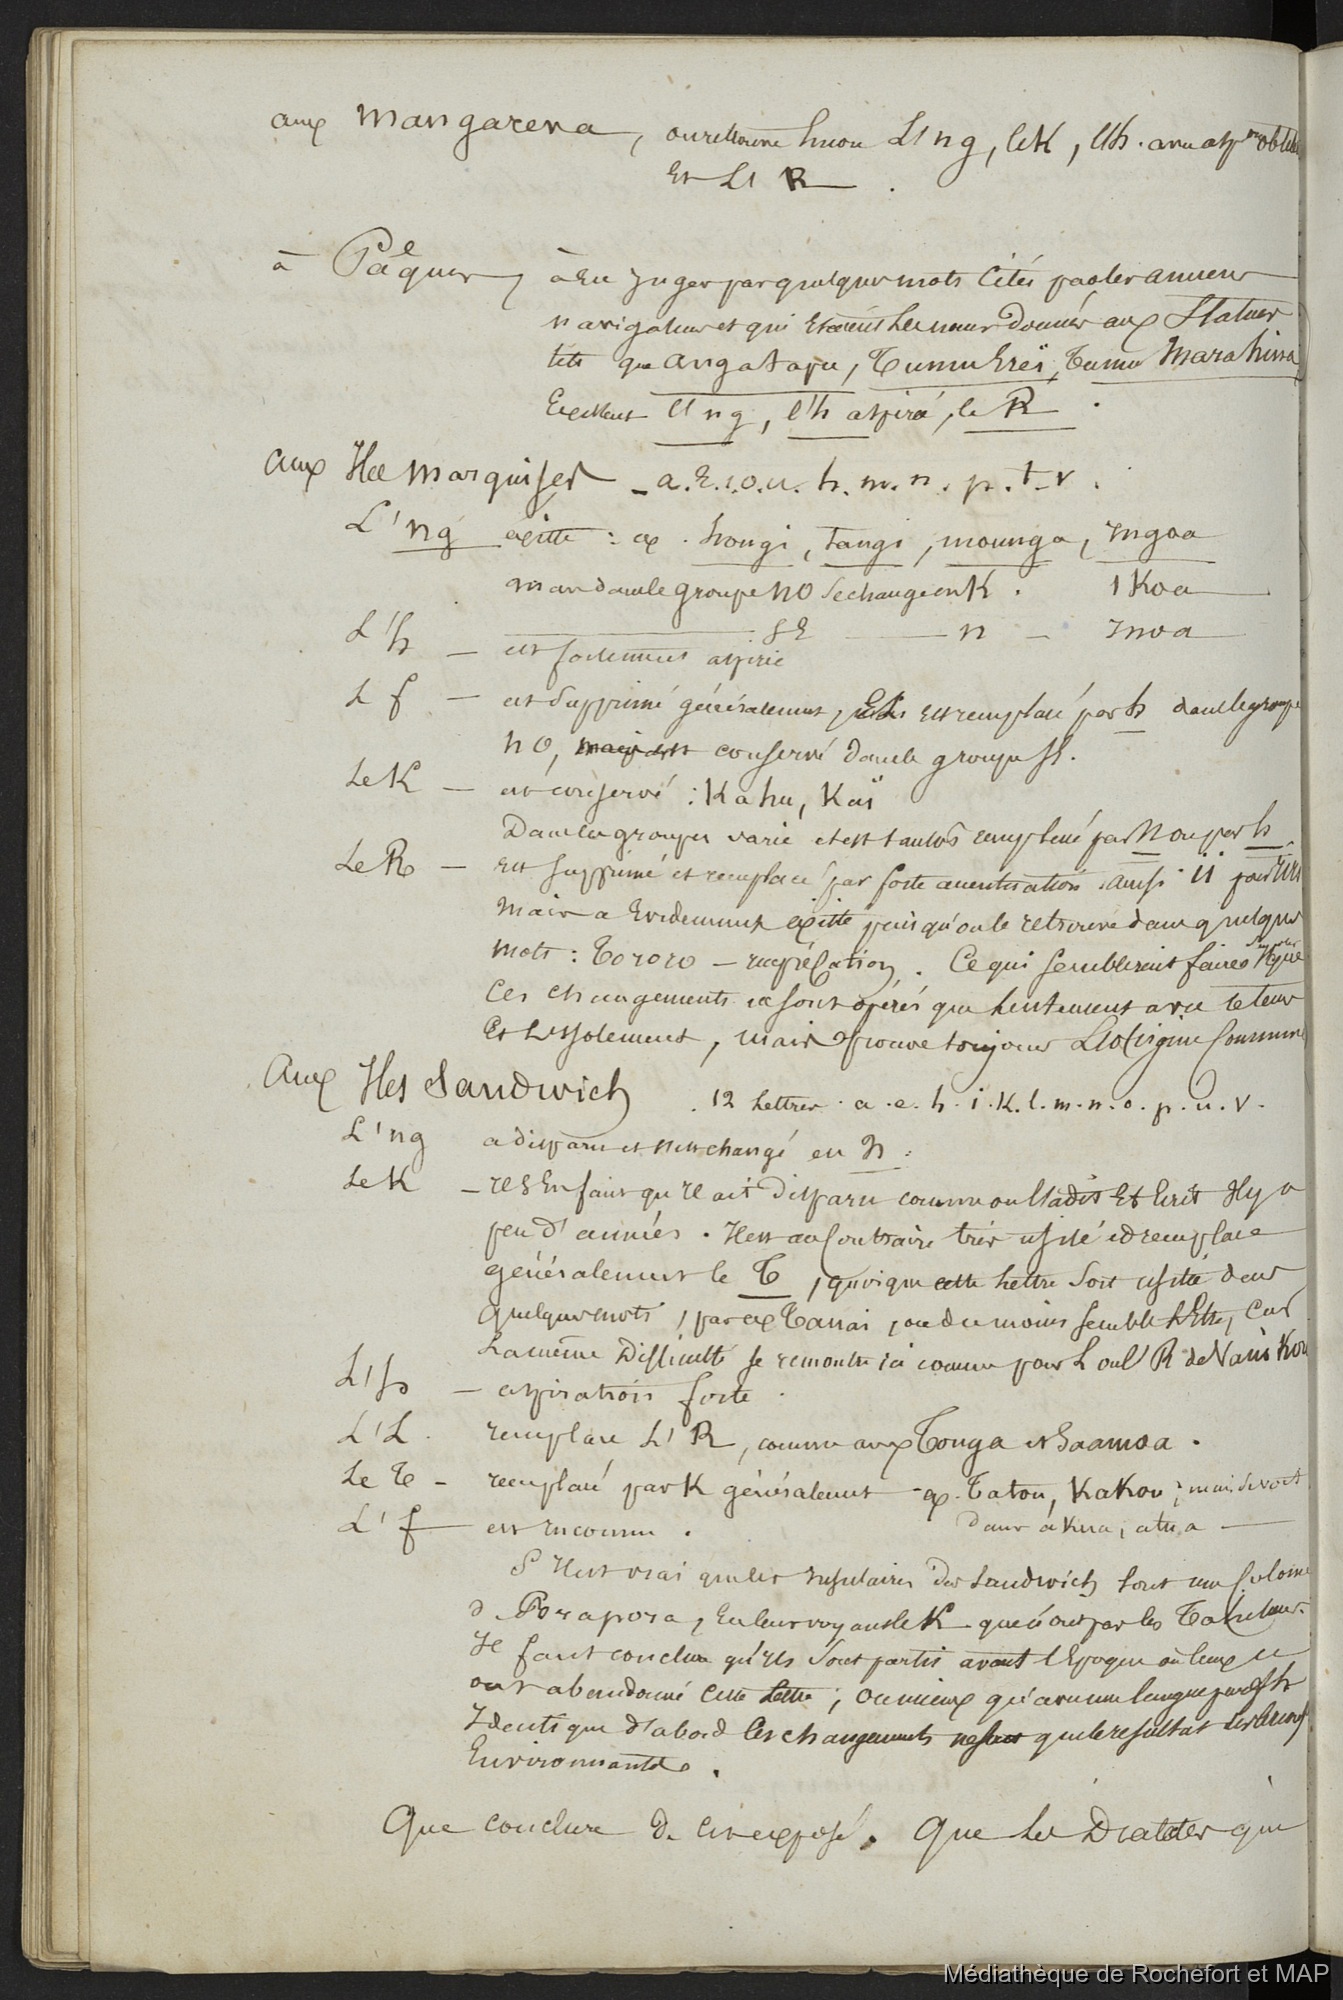 aux Mangareva, on retrouve L'ng, le K, l'h. avec aspon
Et L'R.
à Pâques, à en juger par quelques mots cités par les anciens
navigateurs et qui étaient les noms donnés aux Statues
tels que angatapu, Tumu Ereï, Tumu Marahina
Existent l'ng, l'h aspiré, le R.
Aux Iles Marquises - a. E. i. o. u. h. m. n. p. t - v.
L'ng existe : ex. hongi, tangi, mounga, ingoa
mais dans le groupe NO se change en K. ikoa
SE n - inoa
L'h - est fortement aspirée
L f - est supprimé généralement, Elle est remplacé par h dans le groupe
NO, conservé dans le groupe SE.
Le K - est conservé : Kahu, Kaï
Dans les groupes varie et est tantôt remplacé par N ou par h
Le R - est supprimé et remplacé par forte accentuation ainsi ii pour
Mais a Evidemment existé puisqu'on le retrouve dans quelques
mots : Tororo - . Ce qui semblerait faire
Ces changements se sont opérés que lentement avec le tems
Et L'isolement, mais prouve toujours L'origine Commune
Aux Iles Sandwich . 12 Lettres. a. e. h. i. K. l. m. n. o. p. u. v.
L'ng a disparu et s'est changé en n.
Le K - il s'en faut qu'il ait disparu comme on l'a dit Et Ecrit Il y a
peu d'années. Il est au Contraire très usité et remplace
généralement le T, quoique cette lettre soit usitée dans
quelques mots, par ex Tanai, ou du moins semble l'être, Car
La même Difficulté se rencontre ici comme pour L ou l'R de
L'h - aspiration forte.
L'L. remplace L'R, comme aux Tonga et Saamoa.
Le T - remplacé par K généralement - ex. Tatou, Kakou ; mais se voit
L'f est inconnu. dans akua, atua
S'il est vrai que les Insulaires des Sandwich sont une Colonie
de Porapora, en leur voyant le K que n'ont pas les
Il faut conclure qu'ils sont partis avant l'Epoque où
ont abandonné cette Lettre ; ou mieux qu'avec une langue
Identique d'abord les changements que le résultat
Environnants.
Que conclure de cet exposé. Que les Dialectes qui
Médiathèque de Rochefort et MAP